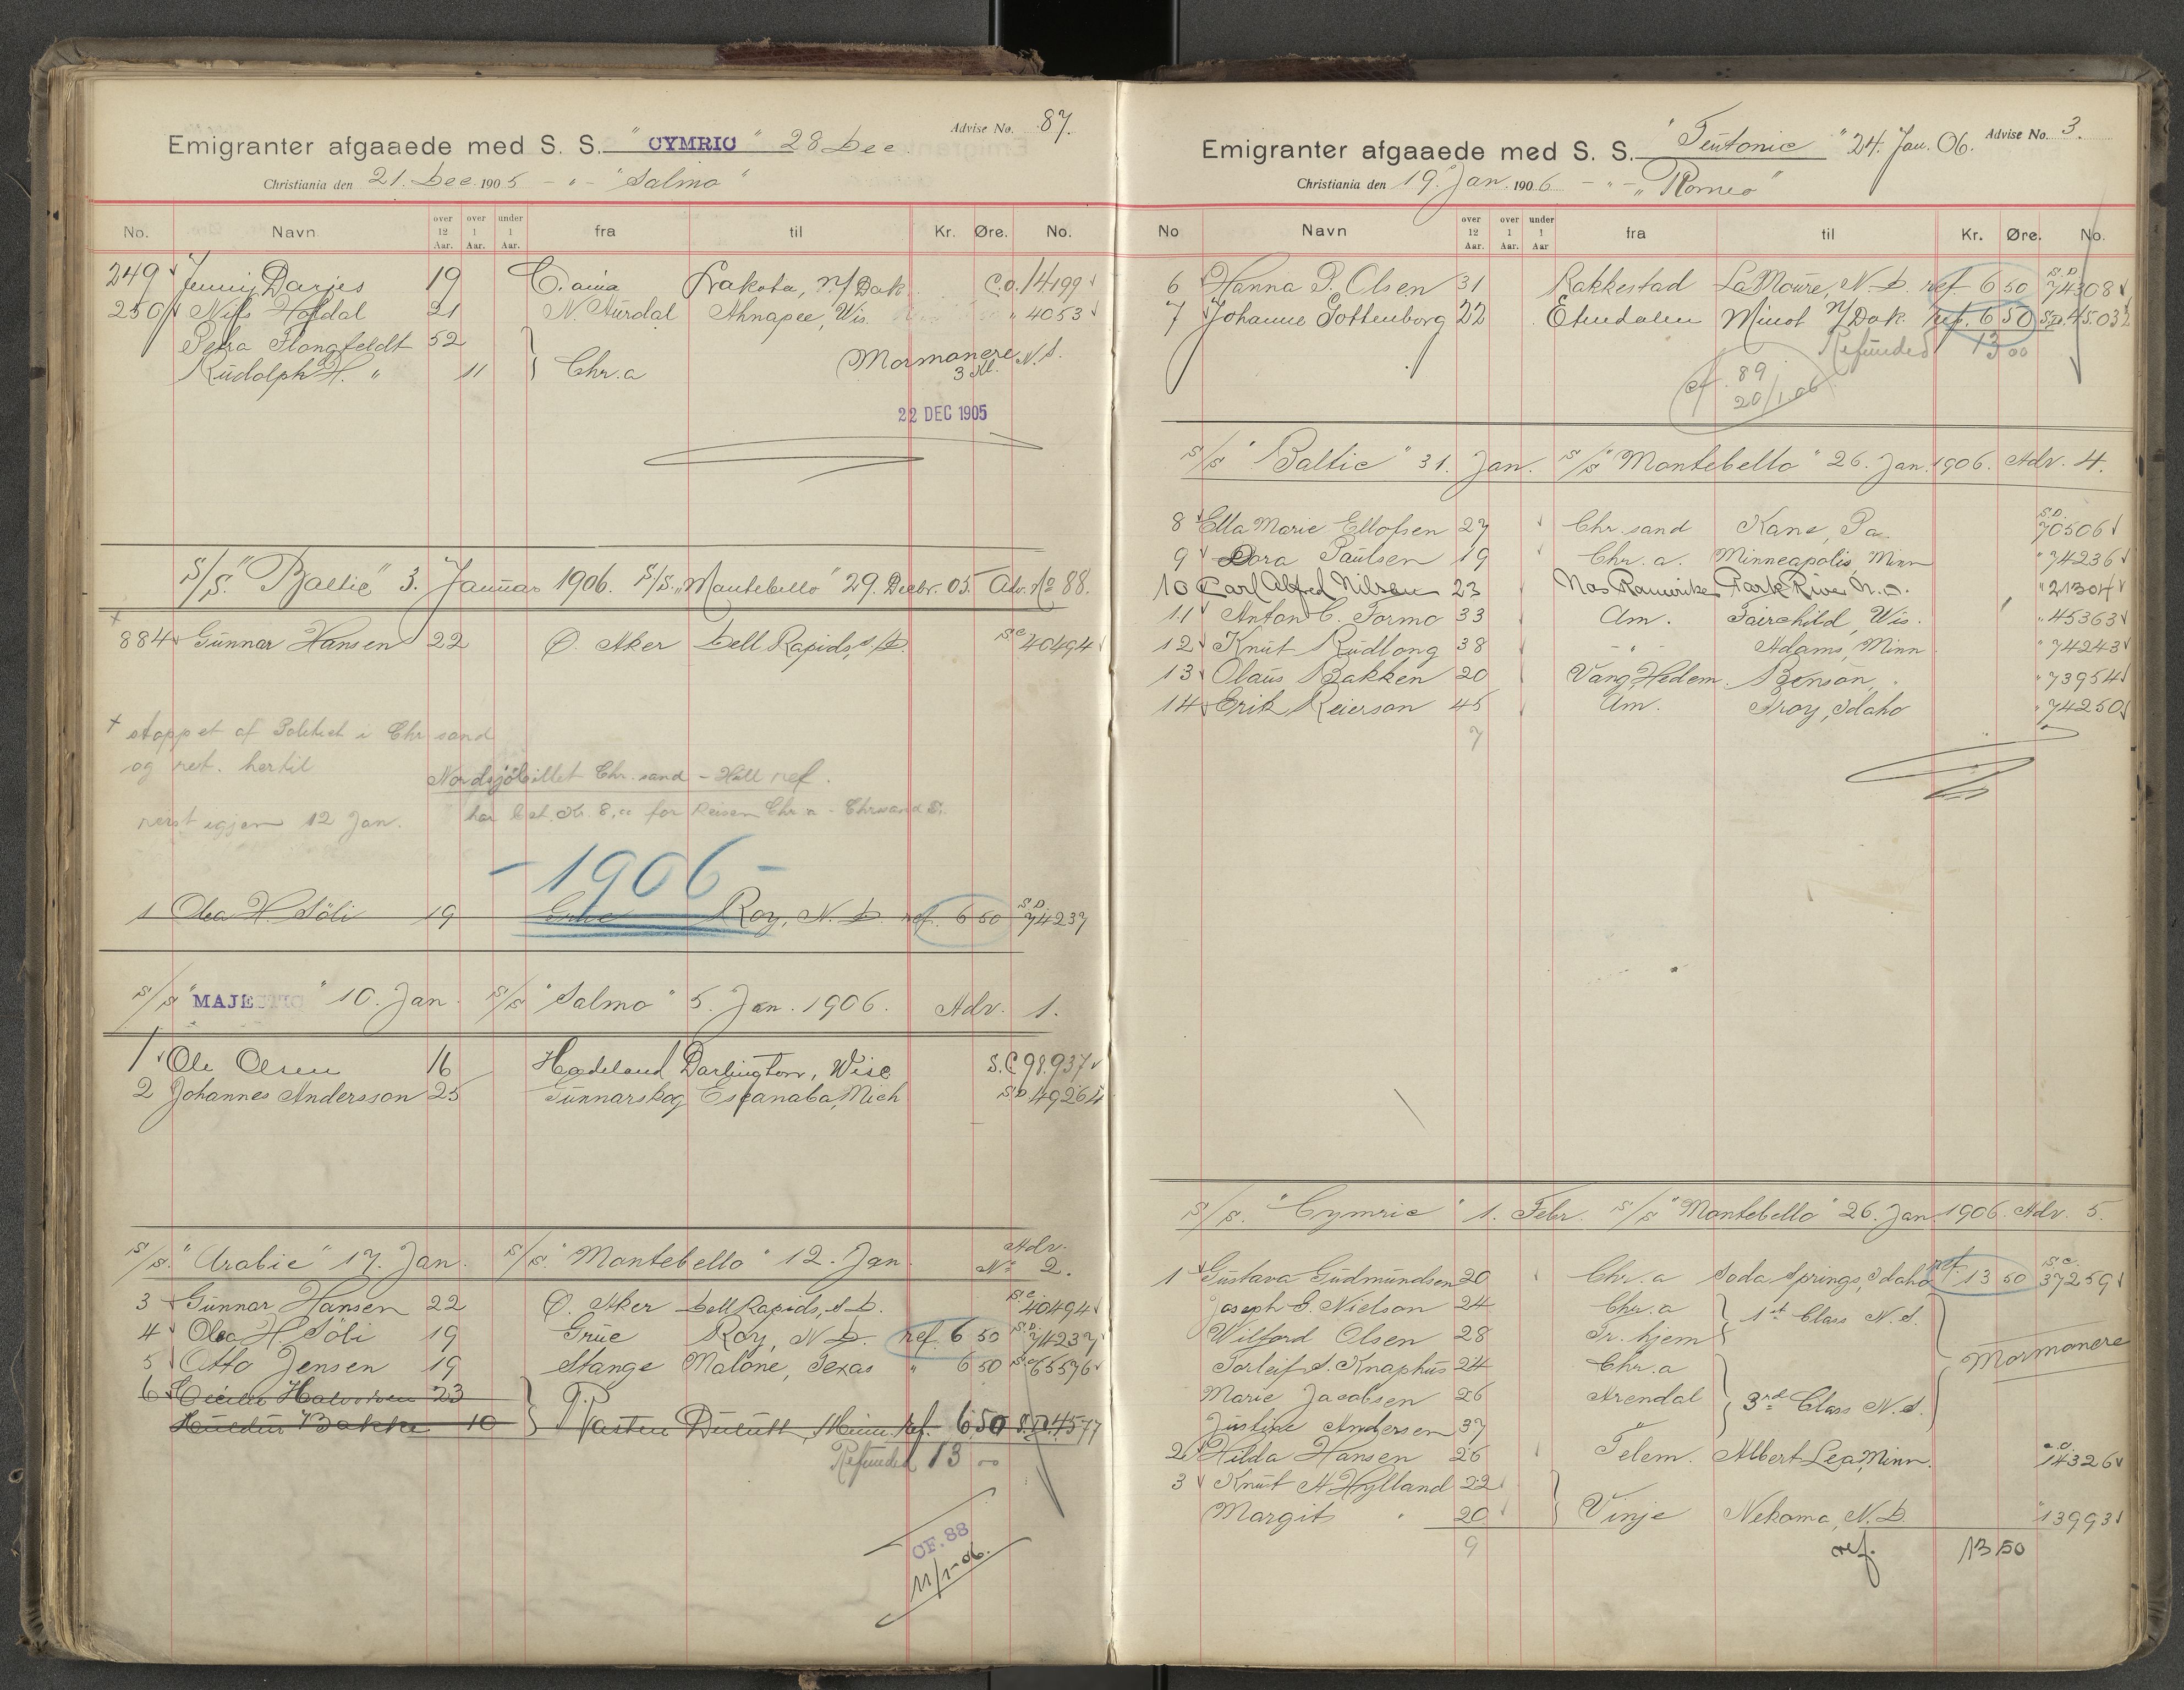 Advise No. 87.
Emigranter afgaaede med S. S. "CYMRIC" 28 Dec.
Christiania den 21. Dec. 1905 - " - "Salmo"
No. Navn over 12 Aar. over 1 Aar. under 1 Aar. fra til Kr. Øre. No.
249 Jenny Darjes 19 C.ania Dakota, N/Dak C.O. 14199
250 Nils Hofdal 21 N. Aurdal Ahnapee, Wis. " 4053
Petra Flongfeldt 52
Rudolph H. " 11 } Chr.a Mormonere N.S.
3 Kl.
22 DEC 1905
S/S. "Baltic" 3. Januar 1906. S/S. "Montebello" 29. Decbr. 05 Adv. No 88.
+
884 Gunnar Hansen 22 Ø. Aker Dell Rapids, S.D. S.C. 40494
+ stoppet af Politiet i Chr sand
og ret. hertil
Nordsjöbillet Chr.sand - Hull ref.
har bet. Kr. 8,00 for Reisen Chr.a - Chrsand S.
reist igjen 12 Jan.
- 1906 -
1 Olea H. Söli 19 Grue Roy, N.D. ref. 6 50 S.D. 74237
S/S "MAJESTIC" 10. Jan. S/S "Salmo" 5. Jan. 1906. Adv. 1.
1 Ole Olsen 16 Hadeland Darlington, Wisc S.C 98.937
2 Johannes Andersson 25 Gunnarskog Escanaba, Mich S.D. 49264
S/S. "Arabic" 17. Jan. S/S. "Montebello" 12. Jan. Adv. No 2.
3 Gunnar Hansen 22 Ø. Aker Dell Rapids, S.D. S.C. 40494
4 Olea H. Söli 19 Grue Roy, N.D. ref. 6 50 S.D. 74237
5 Otto Jensen 19 Stange Malone, Texas " 6 50 S.C. 65576
6 Cecilie Halvorsen 23
Huldur Bakke 10 } Ø. Toten Duluth, Minn. ref. 6 50 S.D. 4577
Refunded 13 00
CF. 88
11/1-06.
Advise No. 3.
Emigranter afgaaede med S. S. "Teutonic" 24. Jan. 06.
Christiania den 19. Jan. 1906 - " - "Romeo"
No Navn over 12 Aar. over 1 Aar. under 1 Aar fra til Kr. Øre. No.
6 Hanna P. Olsen 31 Rakkestad LaMoure, N.D. ref. 6 50 S.D. 74308
7 Johanne Gottenborg 22 Etnedalen Minot N/Dak. ref. 6 50 S.D. 45.032
Refunded 13 00
cf. 89
20/1.06
S/S "Baltic" 31. Jan. S/S "Montebello" 26. Jan. 1906. Adv. 4.
8 Ella Marie Ellofsen 27 Chr.sand Kane, Pa. S.D. 70506
9 Dora Paulsen 19 Chr.a. Minneapolis, Minn " 74236
10 Carl Alfred Nilsen 23 Nes Romerike Park River N.D. " 21304
11 Anton C. Tormo 33 Am. Fairchild, Wis. " 45363
12 Knut Rudlong 38 - " - Adams, Minn " 74243
13 Olaus Bakken 20 Vang, Hedem. Benson, " " 73954
14 Erik Reierson 45 Am. Troy, Idaho " 74250
7
S/S. "Cymric" 1. Febr. S/S "Montebello" 26. Jan 1906. Adv. 5.
1 Gustava Gudmundsen 20 Chr.a Soda Springs, Idaho ref. 13 50 S.C. 37259
Joseph G. Nielson 24 Chr.a
Wilford Olsen 28 Tr.hjem } 1st Class N.S.
Torleif S. Knaphus 24 Chr.a
Mormonere
Marie Jacobsen 26 Arendal } 3rd Class N.S.
Justine Andersen 37 "
2 Hilda Hansen 26 Telem. Albert Lea, Minn. 14326
3 Knut A Hylland 22
Margit " 20 } Vinje Nekoma, N.D. " 13993
9 ref. 13 50